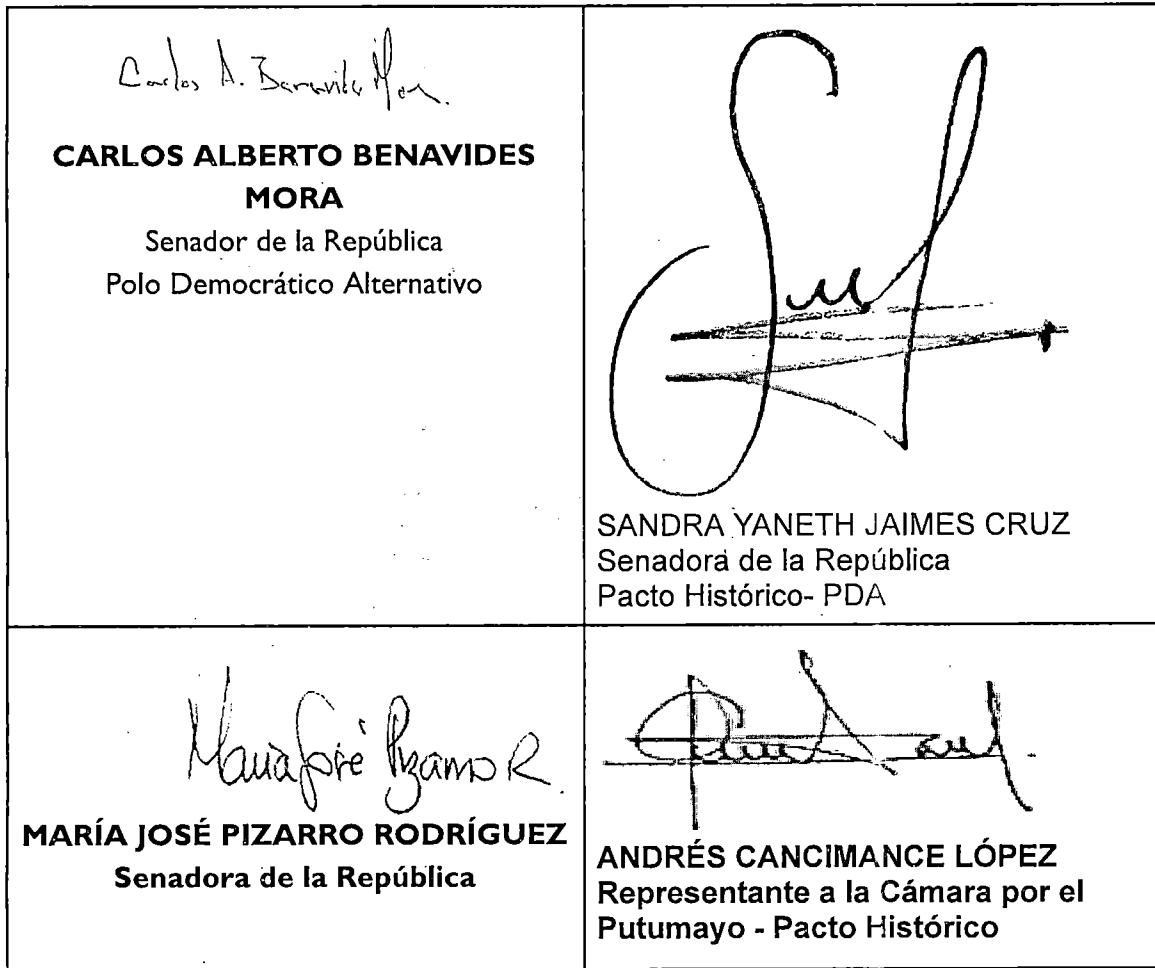 Carlos A. Benavides Mora.
CARLOS ALBERTO BENAVIDES
MORA
Senador de la República
Polo Democrático Alternativo
SANDRA YANETH JAIMES CRUZ
Senadora de la República
Pacto Histórico- PDA
María José Pizarro R.
MARÍA JOSÉ PIZARRO RODRÍGUEZ
Senadora de la República
ANDRÉS CANCIMANCE LÓPEZ
Representante a la Cámara por el
Putumayo - Pacto Histórico